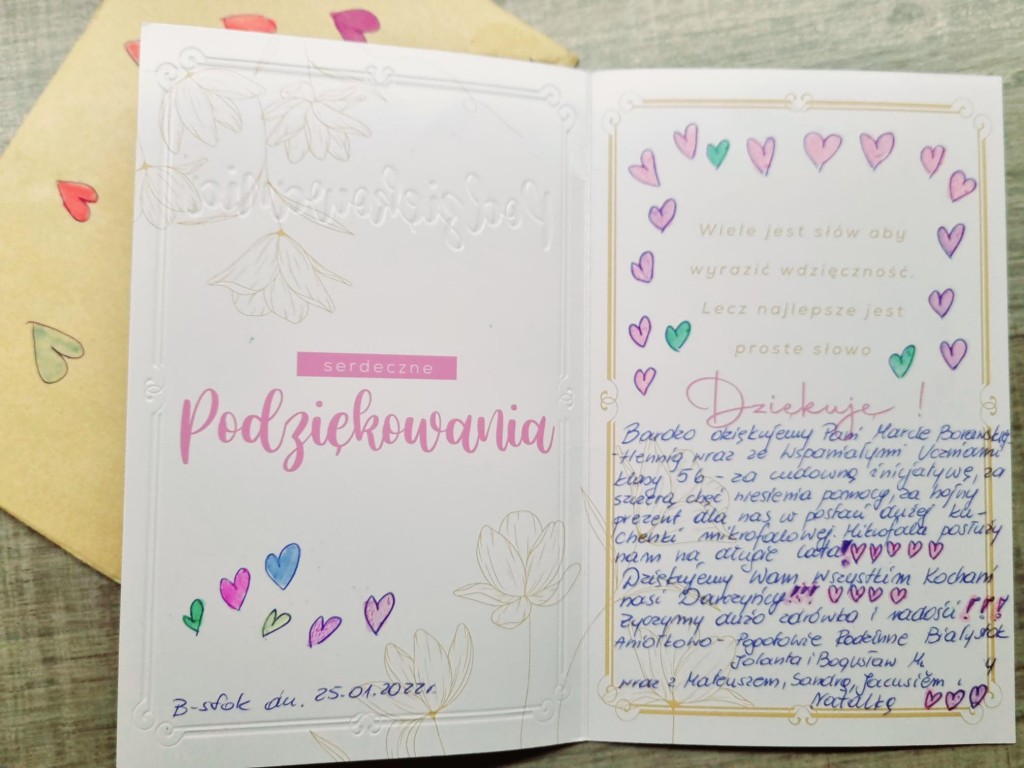 serdeczne
Podziękowania
B-stok dn. 25.01.2022r.
Wiele jest słów aby
wyrazić wdzięczność.
Lecz najlepsze jest
proste słowo
Dziękuję !
Bardzo dziękujemy Pani Marcie
-Hennig wraz ze wspaniałymi Uczniami
klasy 5b - za cudowną inicjatywę, za
szczerą chęć niesienia pomocy, za hojny
prezent dla nas w postaci dużej ku-
chenki mikrofalowej. Mikrofala posłuży
nam na długie lata!
Dziękujemy Wam wszystkim Kochani
nasi Darczyńcy!!!
Życzymy dużo zdrówka i radości!!!
Aniołkowo - Pogotowie Rodzinne Białystok
Jolanta i Bogusław M.
wraz z Mateuszem, Sandrą, Jacusiem i
Natalką